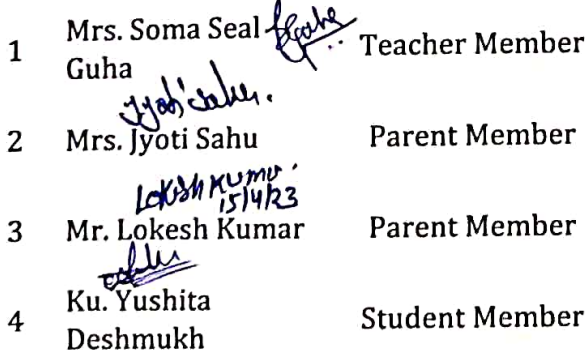 Mrs. Soma Seal SGuha
1 Teacher Member
Guha
Jyoti Sahu.
2 Mrs. Jyoti Sahu Parent Member
Lokesh Kumar
15/4/23
3 Mr. Lokesh Kumar Parent Member
Ku. Yushita
4 Student Member
Deshmukh